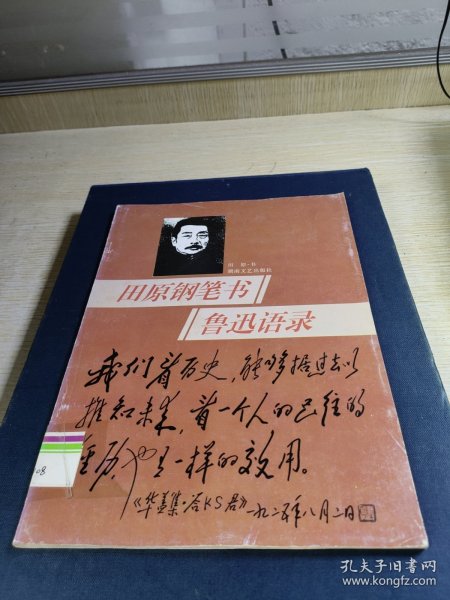 田原·书
湖南文艺出版社
田原钢笔书
鲁迅语录
我们看历史，能够据过去以
推知未来，看一个人的已往的
经历，也有一样的效用。
《华盖集·答KS君》一九二五年八月二日
08
孔夫子旧书网
www.kongfz.com